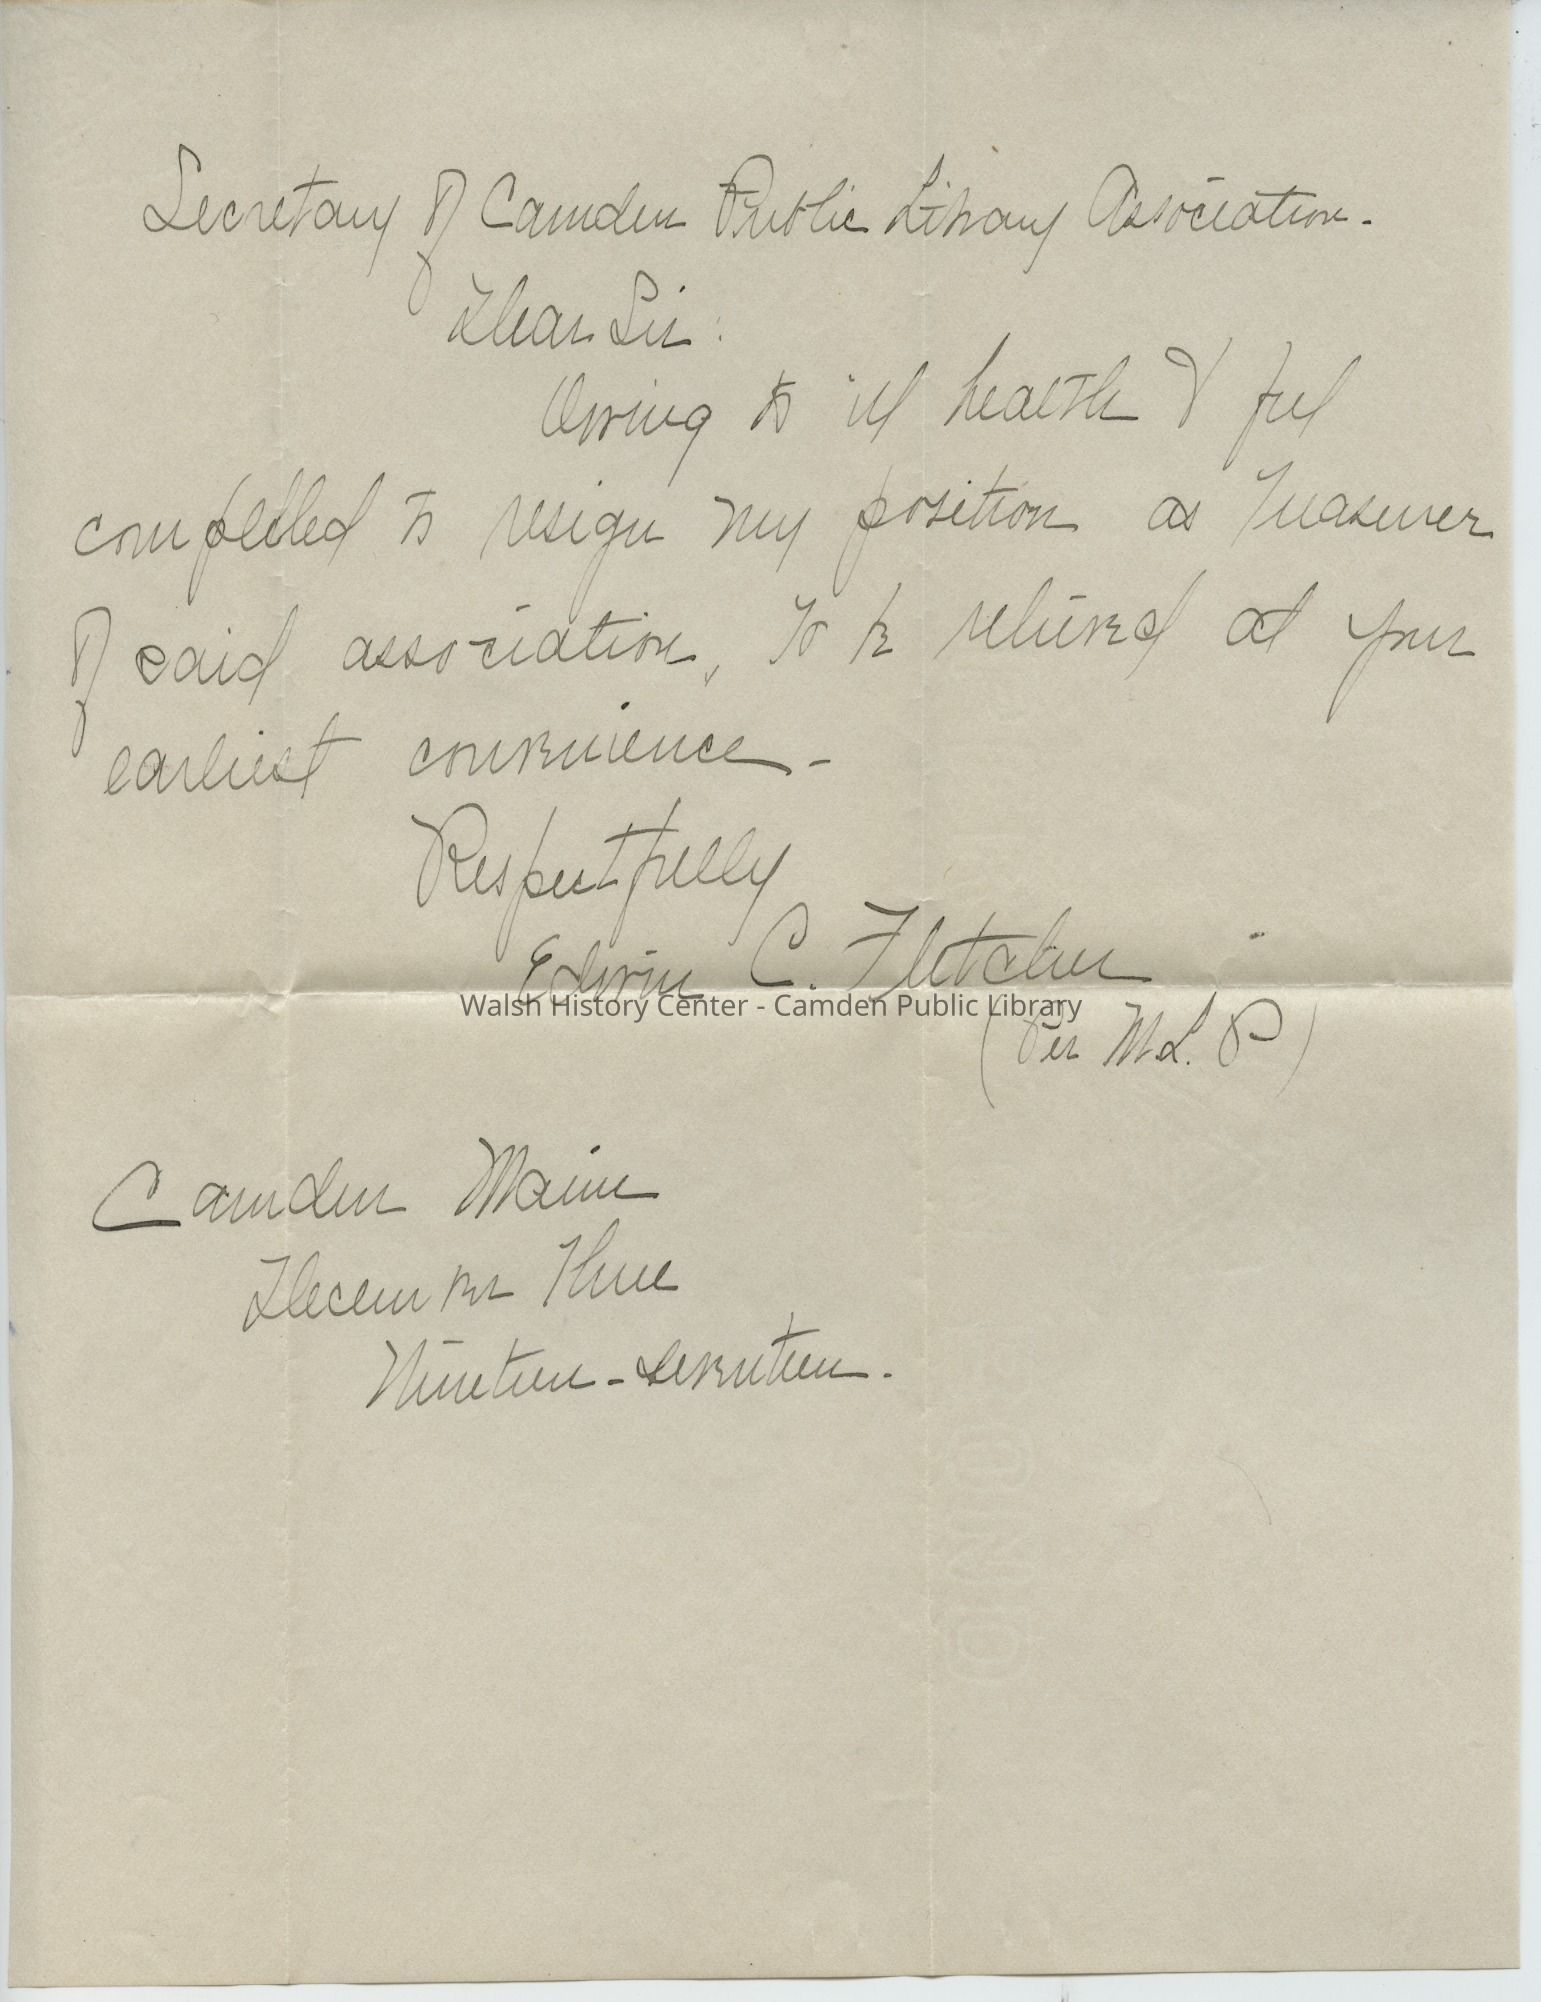 Secretary of Camden Public Library Association.
Dear Sir:
Owing to ill health I feel
compelled to resign my position as Treasurer
of said association, to be relieved at your
earliest convenience.
Respectfully
Edwin C. Fletcher
Walsh History Center - Camden Public Library
(Per M.L. P)
Camden Maine
December Three
Nineteen-seventeen.